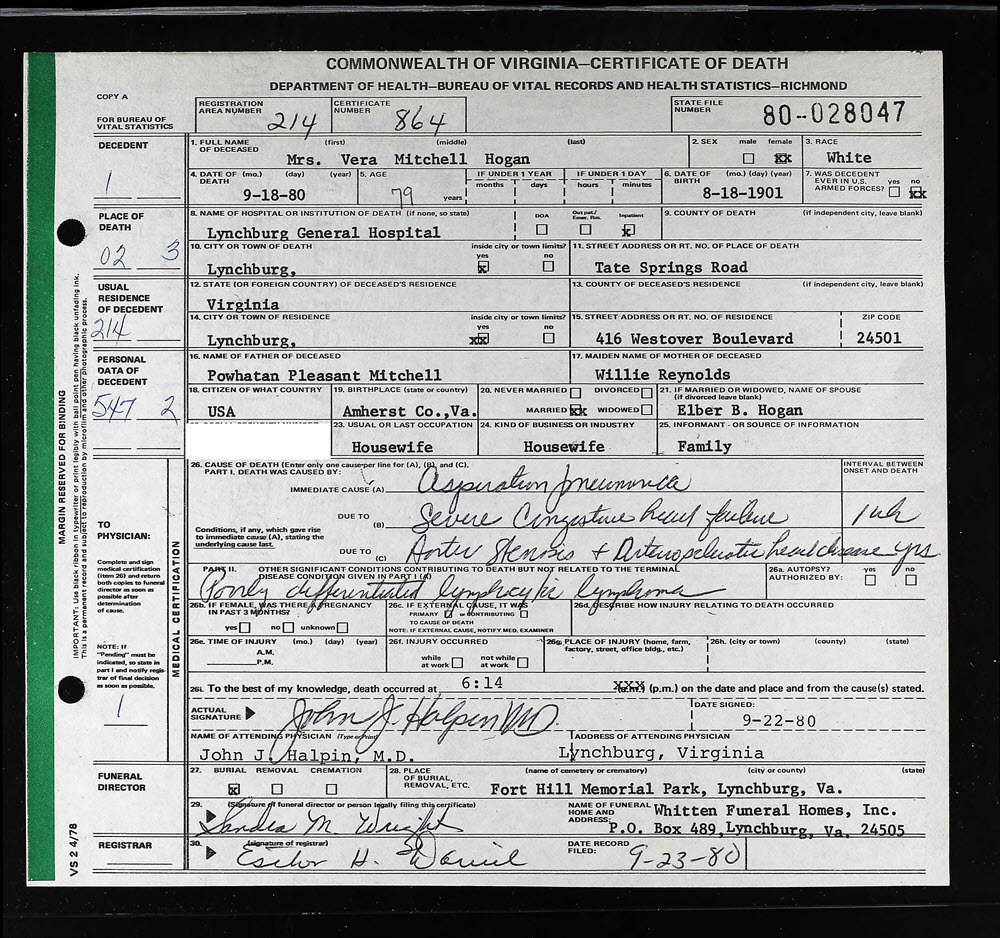 COMMONWEALTH OF VIRGINIA—CERTIFICATE OF DEATH
DEPARTMENT OF HEALTH—BUREAU OF VITAL RECORDS AND HEALTH STATISTICS—RICHMOND
COPY A
FOR BUREAU OF VITAL STATISTICS
REGISTRATION AREA NUMBER 214
CERTIFICATE NUMBER 864
STATE FILE NUMBER 80-028047
DECEDENT
1
1. FULL NAME OF DECEASED (first) (middle) (last)
Mrs. Vera Mitchell Hogan
2. SEX male female xx
3. RACE
White
4. DATE OF DEATH (mo.) (day) (year)
9-18-80
5. AGE
79 years
IF UNDER 1 YEAR months days
IF UNDER 1 DAY hours minutes
6. DATE OF BIRTH (mo.) (day) (year)
8-18-1901
7. WAS DECEDENT EVER IN U.S. ARMED FORCES? yes no xx
PLACE OF DEATH
02 3
8. NAME OF HOSPITAL OR INSTITUTION OF DEATH (if none, so state)
Lynchburg General Hospital
DOA Out pat./ Emer. Rm. Inpatient x
9. COUNTY OF DEATH (if independent city, leave blank)
10. CITY OR TOWN OF DEATH inside city or town limits? yes no
Lynchburg, x
11. STREET ADDRESS OR RT. NO. OF PLACE OF DEATH
Tate Springs Road
USUAL RESIDENCE OF DECEDENT
214
12. STATE (OR FOREIGN COUNTRY) OF DECEASED'S RESIDENCE
Virginia
13. COUNTY OF DECEASED'S RESIDENCE (if independent city, leave blank)
14. CITY OR TOWN OF RESIDENCE inside city or town limits? yes no
Lynchburg, xx
15. STREET ADDRESS OR RT. NO. OF RESIDENCE ZIP CODE
416 Westover Boulevard 24501
PERSONAL DATA OF DECEDENT
547 2
16. NAME OF FATHER OF DECEASED
Powhatan Pleasant Mitchell
17. MAIDEN NAME OF MOTHER OF DECEASED
Willie Reynolds
18. CITIZEN OF WHAT COUNTRY
USA
19. BIRTHPLACE (state or country)
Amherst Co.,Va.
20. NEVER MARRIED DIVORCED
MARRIED xx WIDOWED
21. IF MARRIED OR WIDOWED, NAME OF SPOUSE (if divorced leave blank)
Elber B. Hogan
23. USUAL OR LAST OCCUPATION
Housewife
24. KIND OF BUSINESS OR INDUSTRY
Housewife
25. INFORMANT - OR SOURCE OF INFORMATION
Family
MARGIN RESERVED FOR BINDING
IMPORTANT: Use black ribbon in typewriter or print legibly with ball point pen having black unfading ink.
This is a permanent record and subject to reproduction by microfilm and other photographic process.
VS 2 4/78
TO PHYSICIAN:
Complete and sign medical certification (item 26) and return both copies to funeral director as soon as possible after determination of cause.
NOTE: If "Pending" must be indicated, so state in part I and notify registrar of final decision as soon as possible.
1
MEDICAL CERTIFICATION
26. CAUSE OF DEATH (Enter only one cause per line for (A), (B), and (C).
PART I. DEATH WAS CAUSED BY:
INTERVAL BETWEEN ONSET AND DEATH
IMMEDIATE CAUSE (A) Aspiration pneumonia
Conditions, if any, which gave rise to immediate cause (A), stating the underlying cause last.
DUE TO (B) Severe Congestive heart failure 1 wk
DUE TO (C) Aortic Stenosis + Arteriosclerotic heart disease yrs
PART II. OTHER SIGNIFICANT CONDITIONS CONTRIBUTING TO DEATH BUT NOT RELATED TO THE TERMINAL DISEASE CONDITION GIVEN IN PART I (A)
Poorly differentiated lymphocytic lymphoma
26a. AUTOPSY? yes no
AUTHORIZED BY:
26b. IF FEMALE, WAS THERE A PREGNANCY IN PAST 3 MONTHS?
yes no unknown
26c. IF EXTERNAL CAUSE, IT WAS
PRIMARY or CONTRIBUTING
TO CAUSE OF DEATH
NOTE: IF EXTERNAL CAUSE, NOTIFY MED. EXAMINER
26d. DESCRIBE HOW INJURY RELATING TO DEATH OCCURRED
26e. TIME OF INJURY (mo.) (day) (year)
A.M.
P.M.
26f. INJURY OCCURRED
while at work not while at work
26g. PLACE OF INJURY (home, farm, factory, street, office bldg., etc.)
26h. (city or town) (county) (state)
26i. To the best of my knowledge, death occurred at 6:14 XXX (a.m.) (p.m.) on the date and place and from the cause(s) stated.
ACTUAL SIGNATURE John J. Halpin MD
DATE SIGNED:
9-22-80
NAME OF ATTENDING PHYSICIAN (Type or Print)
John J. Halpin, M.D.
ADDRESS OF ATTENDING PHYSICIAN
Lynchburg, Virginia
FUNERAL DIRECTOR
27. BURIAL REMOVAL CREMATION
x
28. PLACE OF BURIAL, REMOVAL, ETC. (name of cemetery or crematory) (city or county) (state)
Fort Hill Memorial Park, Lynchburg, Va.
29. (Signature of funeral director or person legally filing this certificate)
Sandra M. Wright
NAME OF FUNERAL HOME AND ADDRESS:
Whitten Funeral Homes, Inc.
P.O. Box 489, Lynchburg, Va. 24505
REGISTRAR
30. (signature of registrar)
H. Daniel
DATE RECORD FILED: 9-23-80